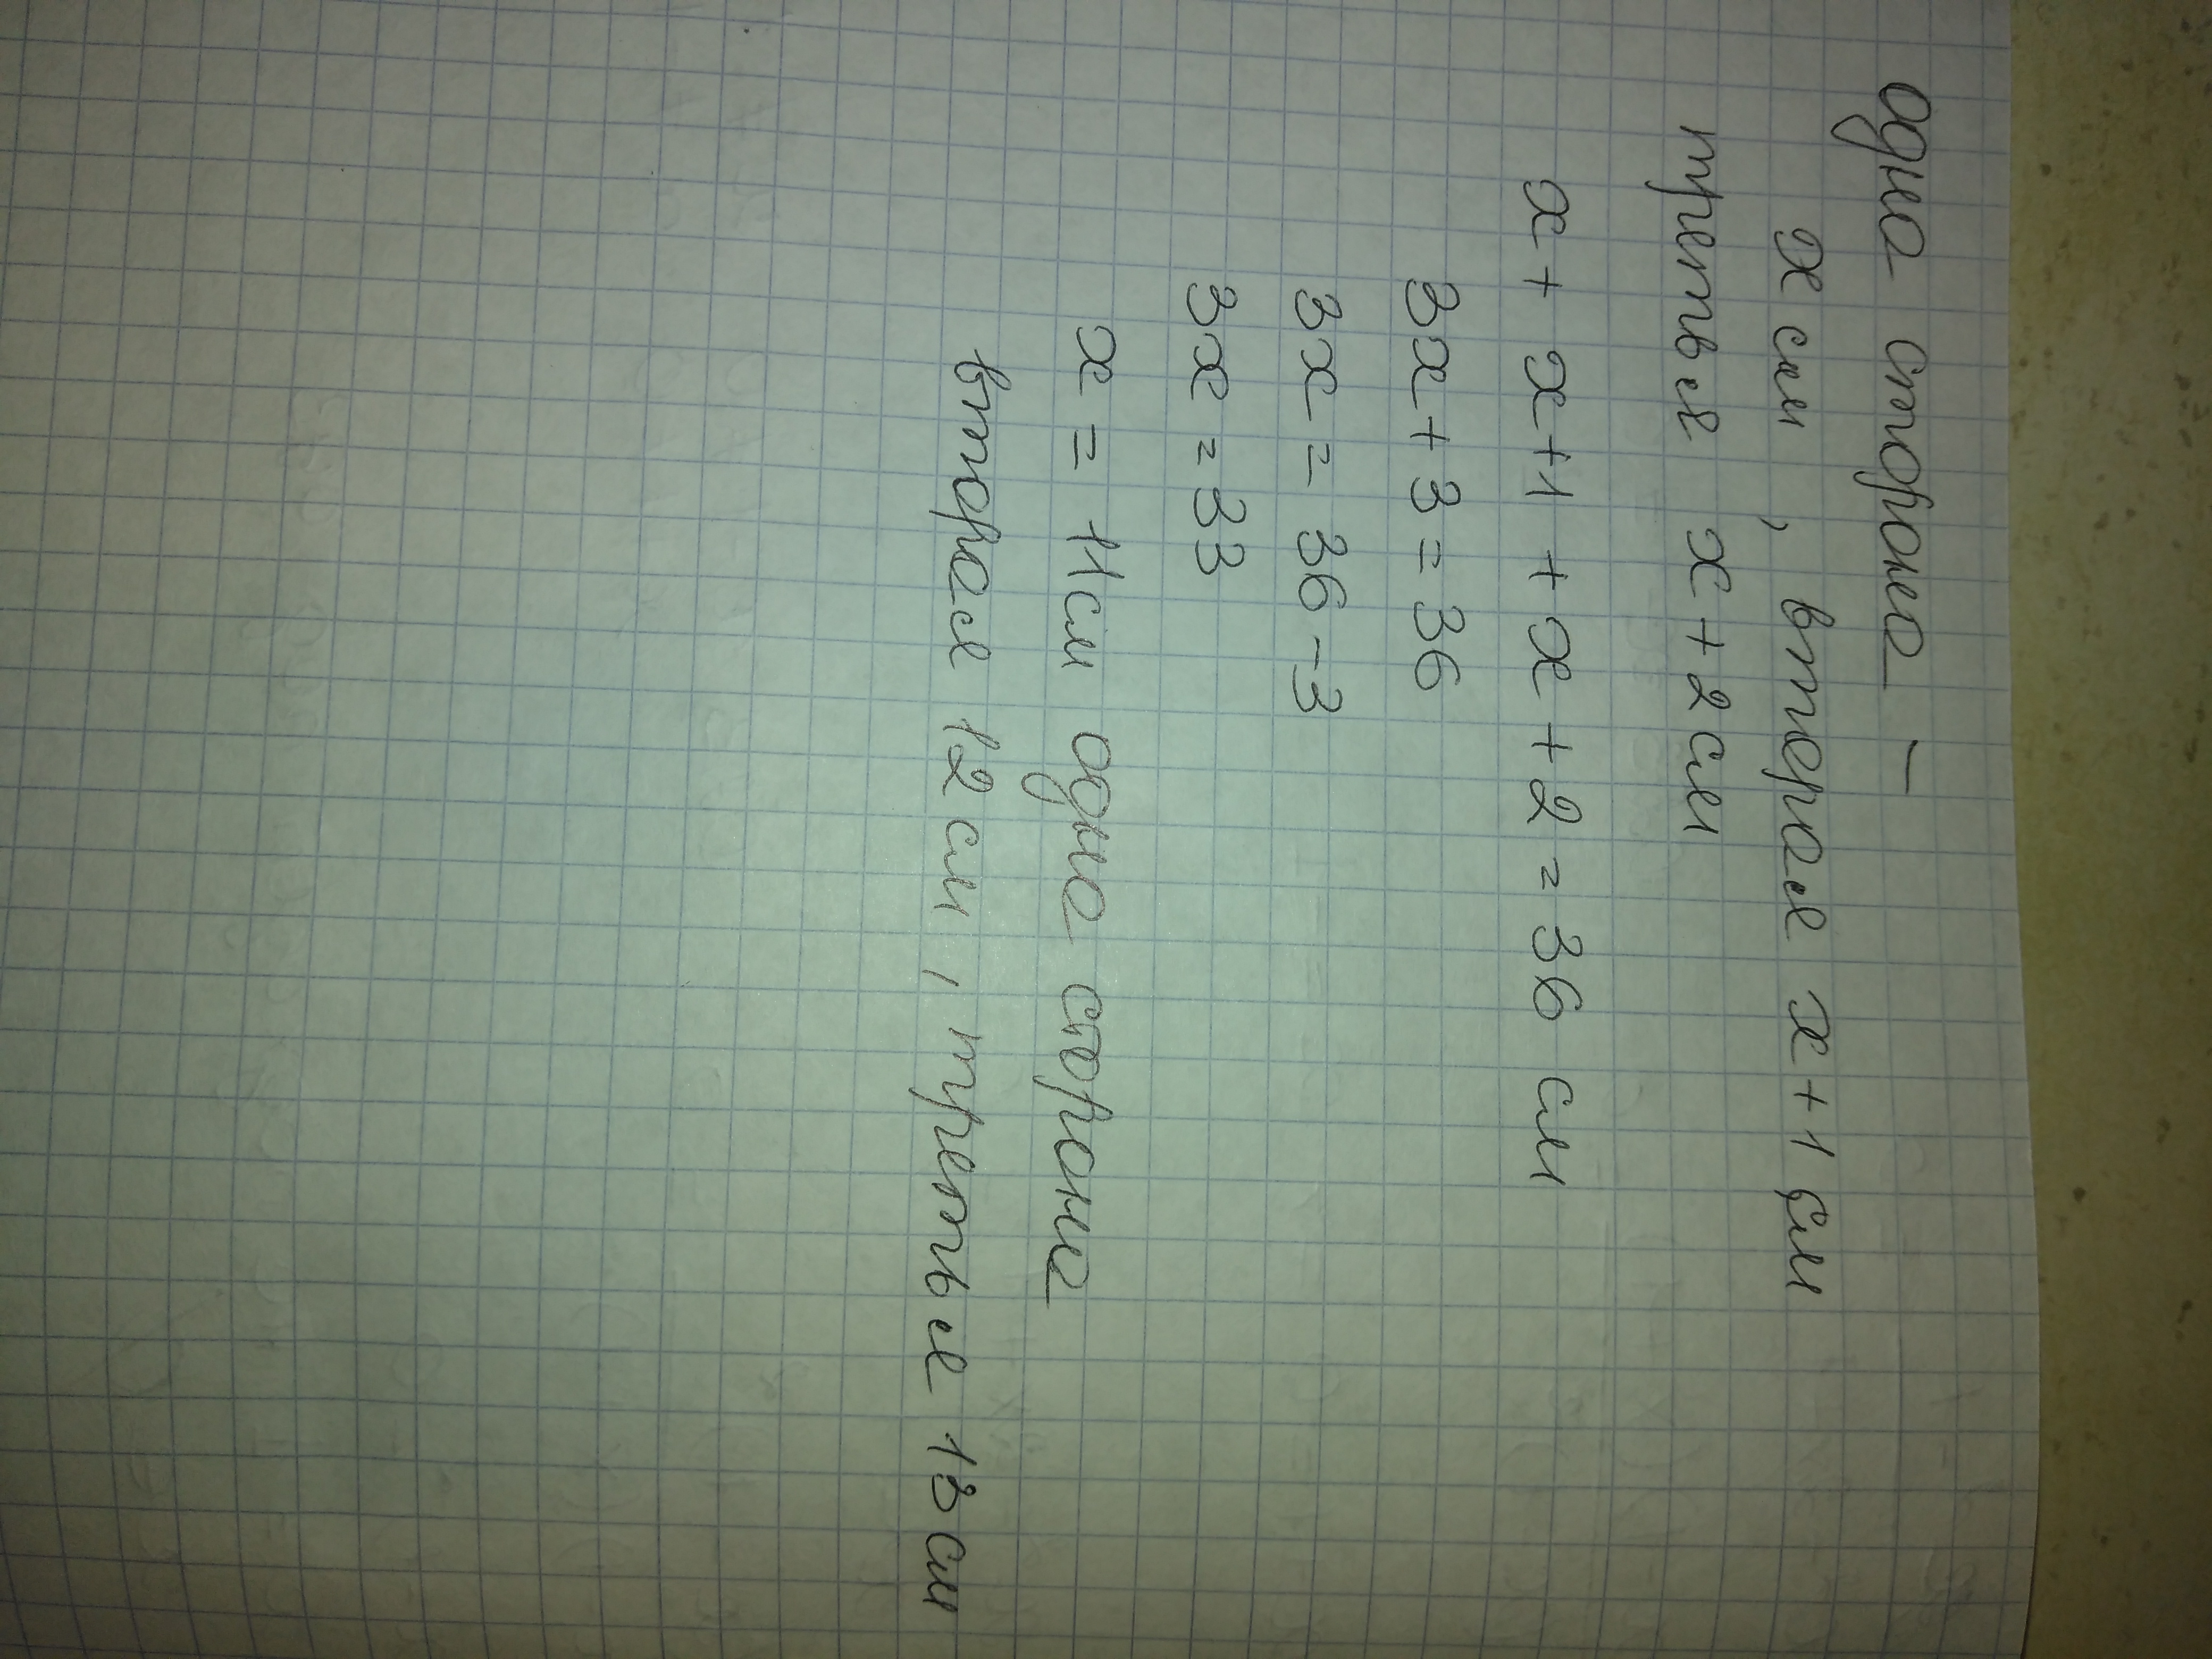 одна сторона –
x см, вторая x+1 см
третья x+2 см
x + x+1 + x+2 = 36 см
3x+3=36
3x = 36-3
3x = 33
x = 11 см одна сторона
вторая 12 см, третья 13 см